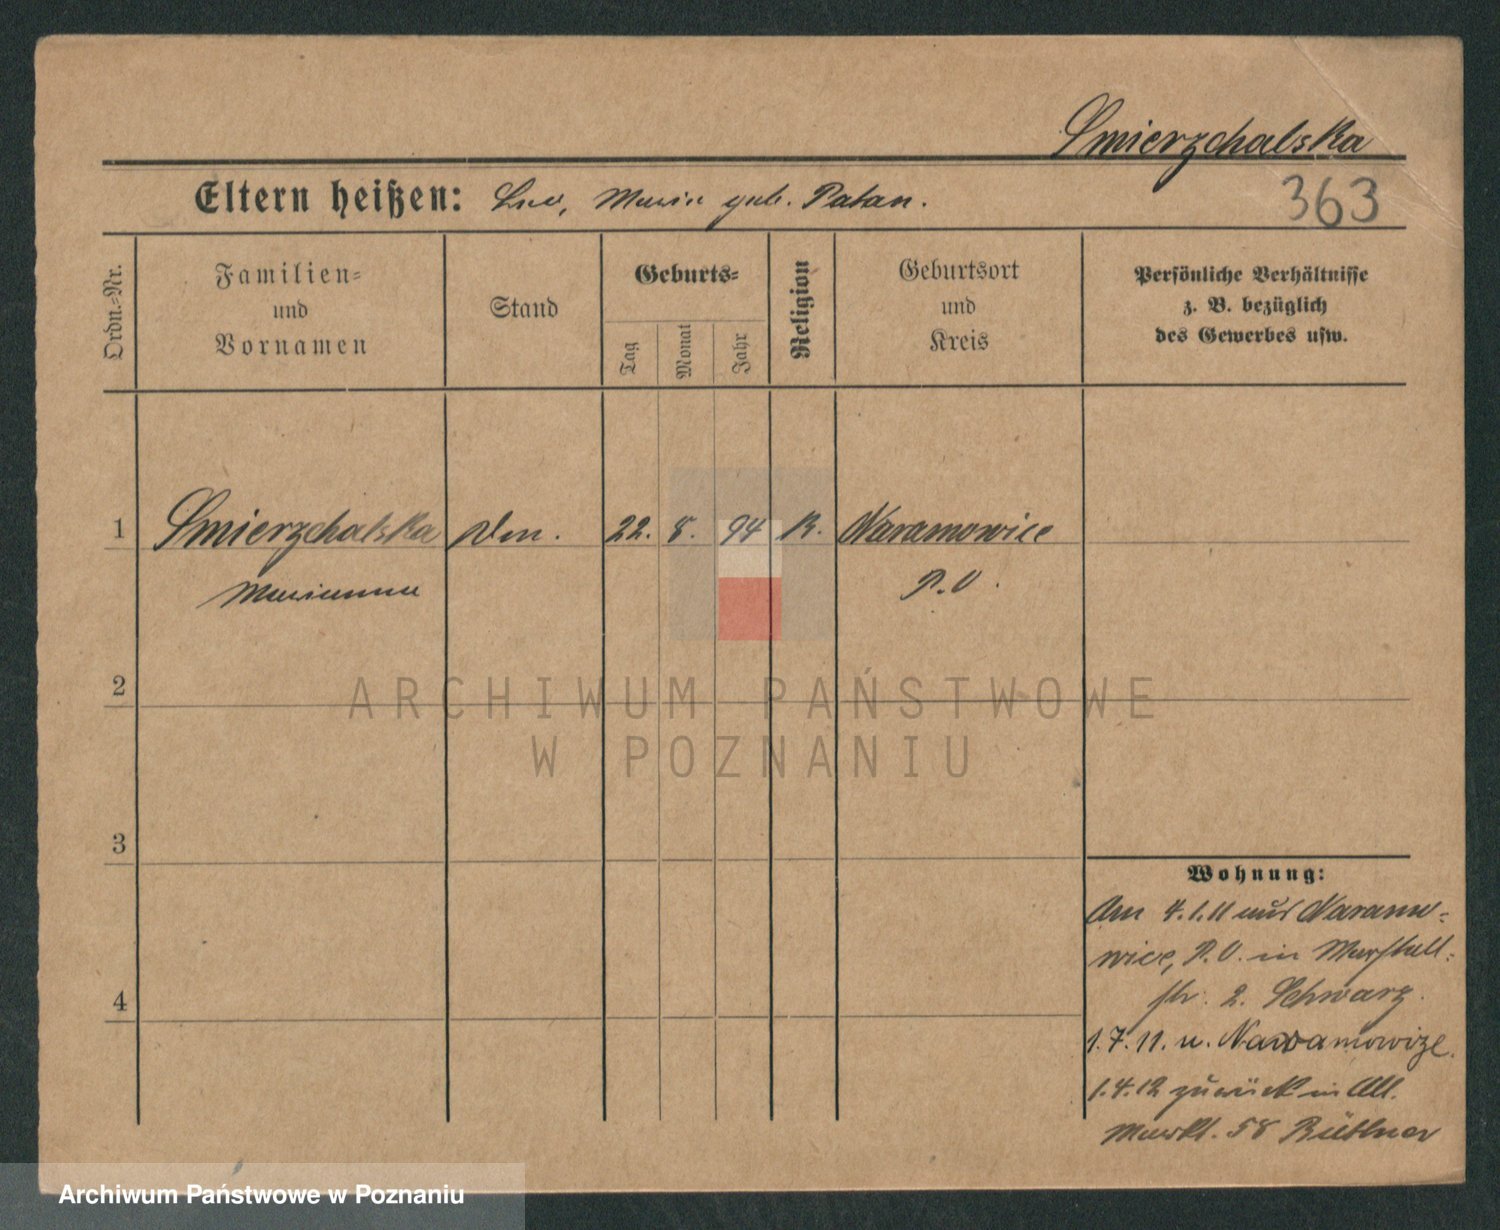 Smierzchalska
Eltern heißen: Leo, Maria geb. Patan.
363
Ordn.=Nr.
Familien=
und
Vornamen
Stand
Geburts=
Tag
Monat
Jahr
Religion
Geburtsort
und
Kreis
Persönliche Verhältnisse
z. B. bezüglich
des Gewerbes usw.
1 Smierzchalska 22. 8. 94 K. Naramowice
Marianna P.O.
2
ARCHIWUM PAŃSTWOWE
W POZNANIU
3
Wohnung:
Am 4.1.11 aus Naramo=
wice, P.O. in Marstall=
str. 2. Schwarz.
4
1.7.11. n. Naramowize.
1.4.12 zurück in Alt.
Markt. 58 Büttner
Archiwum Państwowe w Poznaniu